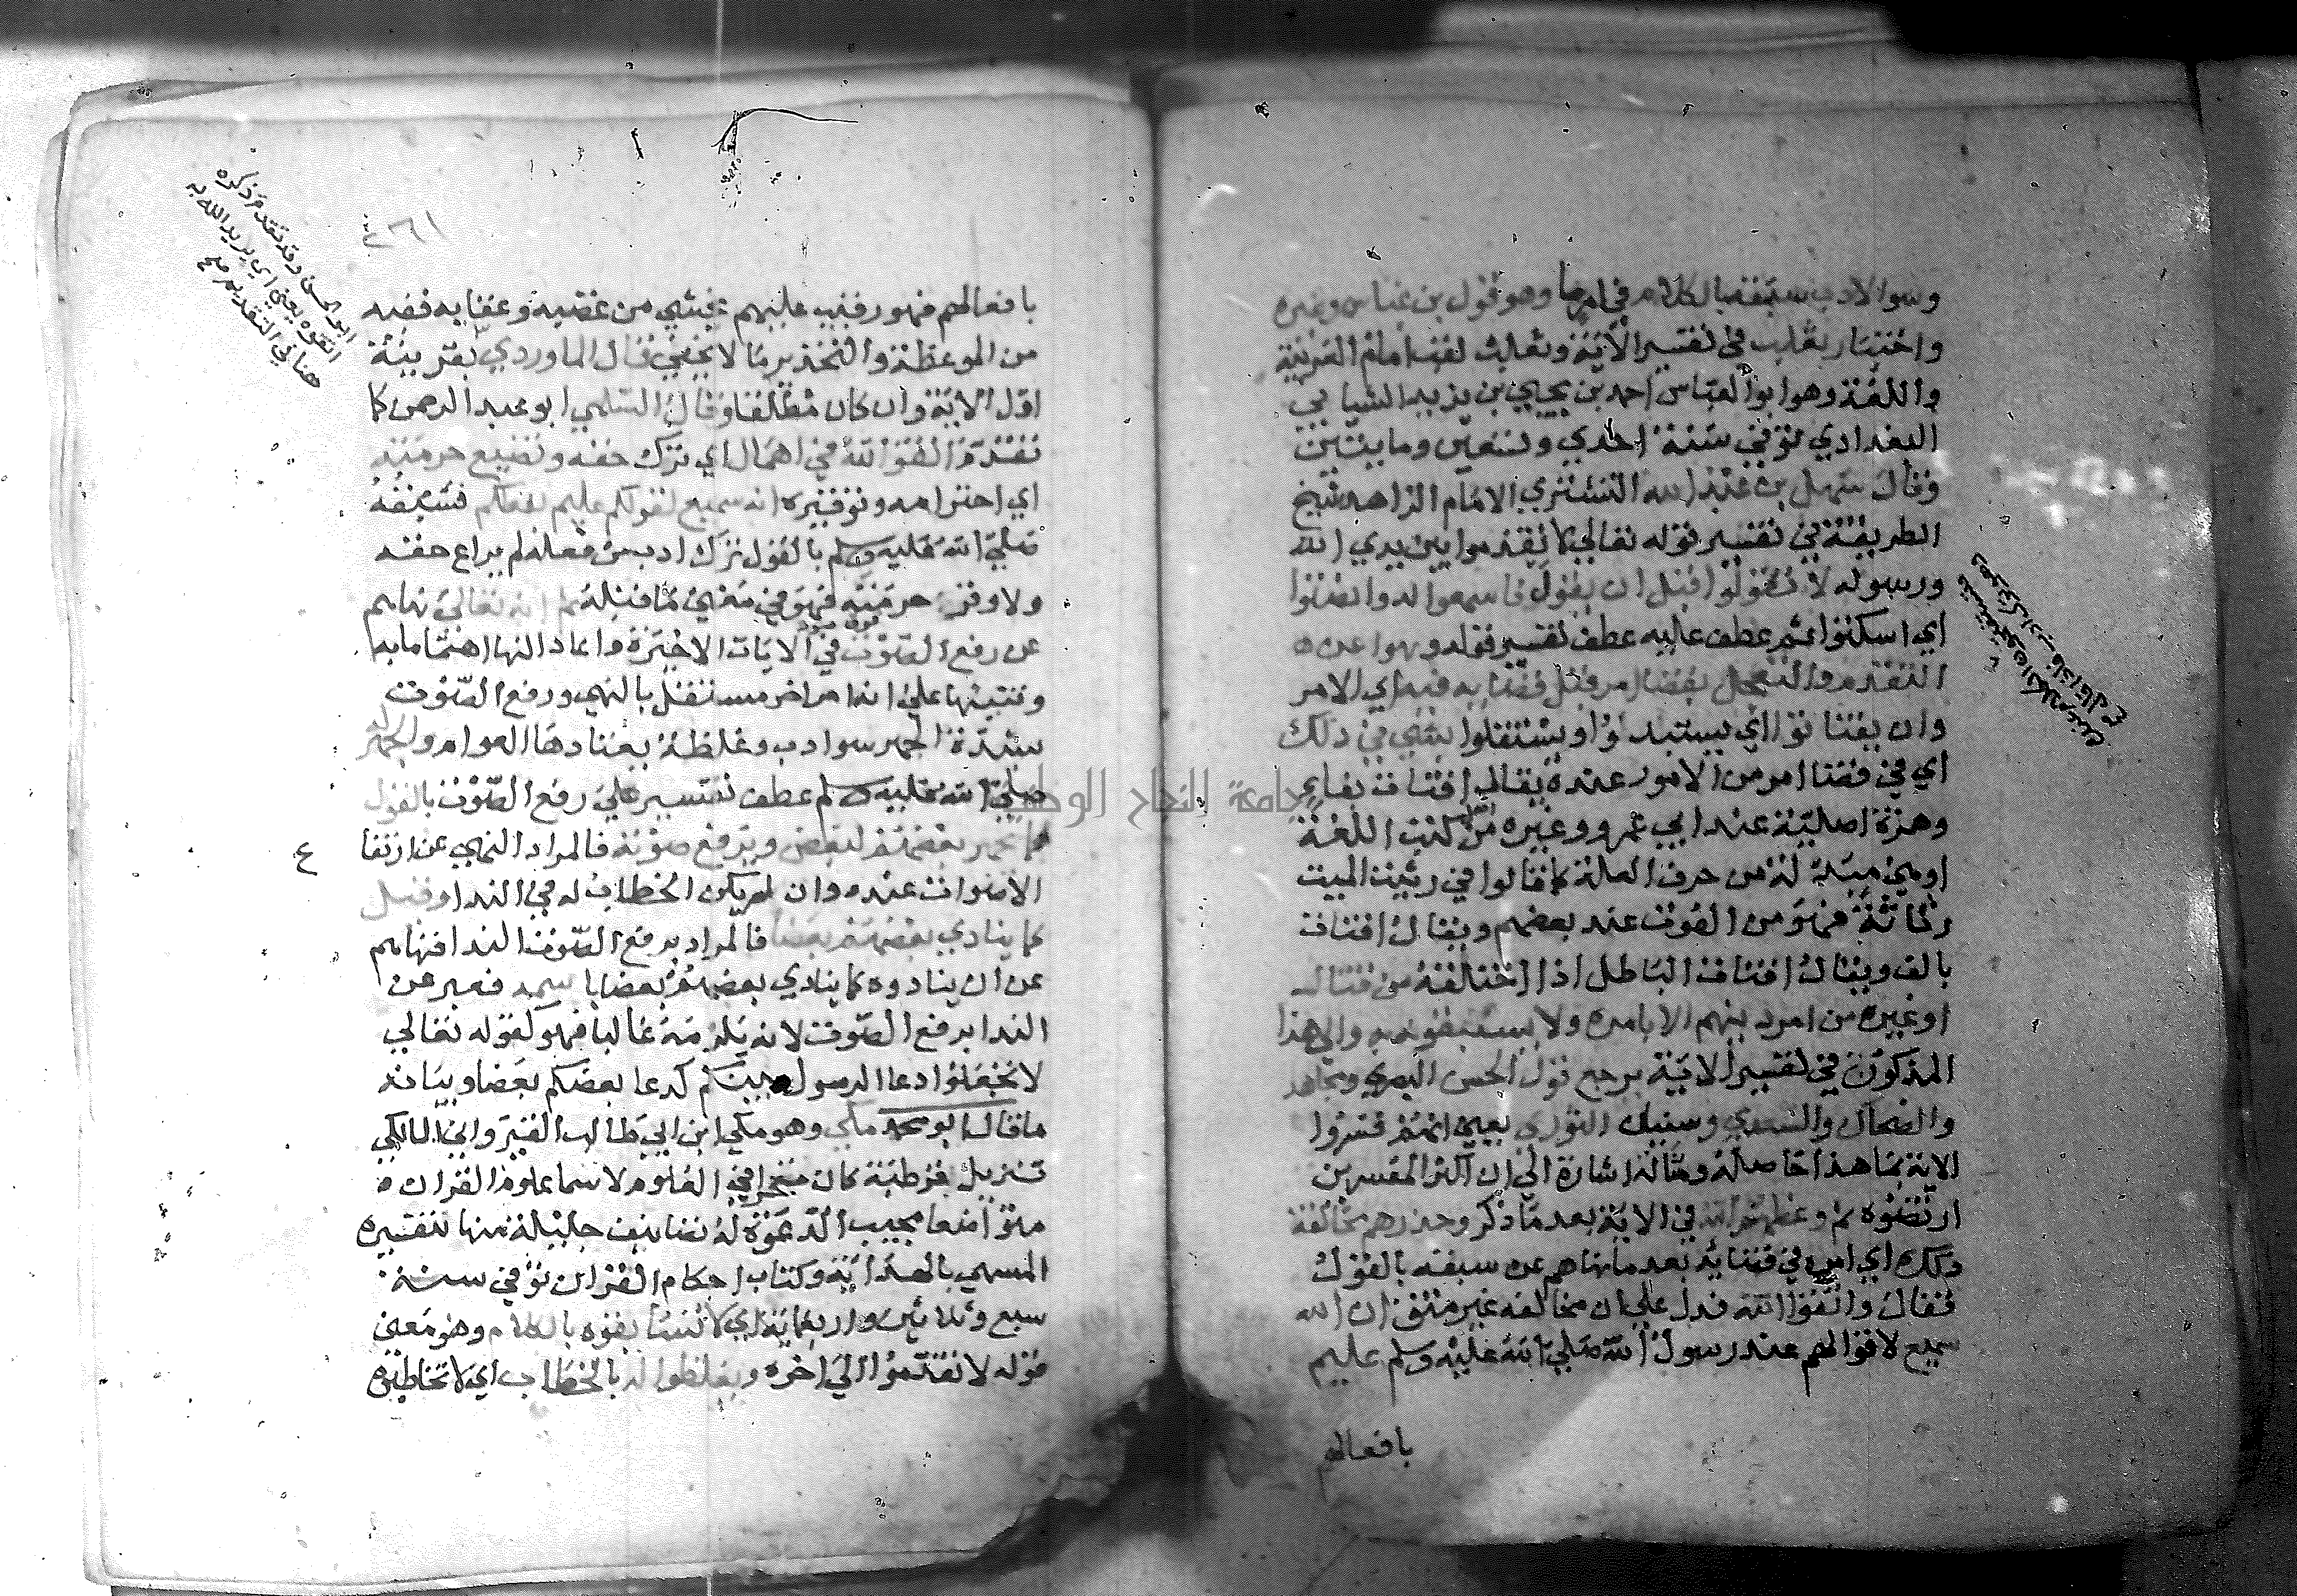 وسوا الادب سبقه بالكلام في امر ما وهو قول بن عباس وغيره
واختيار ثعلب في تفسير الاية وثعلب لقب امام العربية
واللغة وهو ابو العباس احمد بن يحيي بن يزيد الشيباني
البغدادي توفي سنة احدي وتسعين وما يتين
وقال سهل بن عبد الله التستري الامام الزاهد شيخ
الطريقة في تفسير قوله تعالي لا تقدموا بين يدي الله
ورسوله لا تقولوا قبل ان يقول فاسمعوا له وانصتوا
اي اسكتوا ثم عطف عليه عطف تفسير قوله ونهوا عن
التقدم والتعجل بقضا امر قبل قضايه فيه اي الامر
وان يفتاتوا اي يستبدوا او يستقلوا بشي في ذلك
اي في قضا امر من الامور عنده يقال افتات بفاي
وهمزة اصلية عند ابي عمرو وغيره من كتب اللغة
او هي مبدلة من حرف العلة كما قالوا في رثيت الميت
رثاثة فهو من الفوت عند بعضهم ويقال افتات
بالف ويقال افتات الباطل اذا اختلقه من قتال
او غيره من امر دينهم الا بامره ولا يسبقونه به والي هذا
المذكور في تفسير الاية يرجع قول الحسن البصري ومجاهد
والضحاك والسدي وسفيان الثوري يعني انهم فسروا
الاية بما هذا حاصله وماله اشارة الي ان اكثر المفسرين
ارتضوه ثم وعظهم الله في الاية بعد ما ذكر وحذرهم مخالفة
ذلك اي امره في قضائه بعد ما نهاهم عن سبقه بالقول
فقال واتقوا الله فدل علي ان مخالفه غير متق ان الله
سميع لاقوالهم عند رسول الله صلي الله عليه وسلم عليم
بافعالهم
٢٦١
بافعالهم فهو رقيب عليهم يخشي من غضبه وعقابه ففيه
من الموعظة والتحذير ما لا يخفي فقال الماوردي بقرينة
اول الاية وان كان مطلقا وقال السلمي ابو عبد الرحمن كما
تقدم اتقوا الله في اهمال اي ترك حقه وتضييع حرمته
اي احترامه وتوقيره انه سميع لقولكم عليم بفعلكم فسبقه
صلي الله عليه وسلم بالقول ترك ادب من فعله لم يراع حقه
ولا وقر حرمته فهو في معني ما قبله ثم انه تعالي نهاهم
عن رفع الصوت في الايات الاخيرة واعاد النها اهتماما به
وتنبيها علي انه امر اخر مستقل بالنهي ورفع الصوت
بشدة الجهر سوا ادب وغلظة يعتادها العوام والجهر
صلي الله عليه وسلم عطف تفسير علي رفع الصوت بالقول
كما يجهر بعضهم لبعض ويرفع صوته فالمراد النهي عن ارتفا
ع
الاصوات عنده وان لم يكن الخطاب له في الندا وقيل
كما ينادي بعضهم بعضا فالمراد برفع الصوت الندا فنهاهم
عن ان ينادوه كما ينادي بعضهم بعضا باسمه فعبر عن
الندا برفع الصوت لانه يلزمه غالبا فهو كقوله تعالي
لا تجعلوا دعا الرسول بينكم كدعا بعضكم بعضا وبيانه
ما قال ابو محمد مكي وهو مكي ابن ابي طالب القيرواني المالكي
نزيل قرطبة كان متبحرا في العلوم لاسيما علوم القران
متواضعا مجيب الدعوة له تصانيف جليلة منها تفسيره
المسمي بالهداية وكتاب احكام القران توفي سنة
سبع وثلاثين واربعماية اي لا تسابقوه بالكلام وهو معني
قوله لا تقدموا الي اخره ويغلظوا له بالخطاب اي لا تخاطبوه